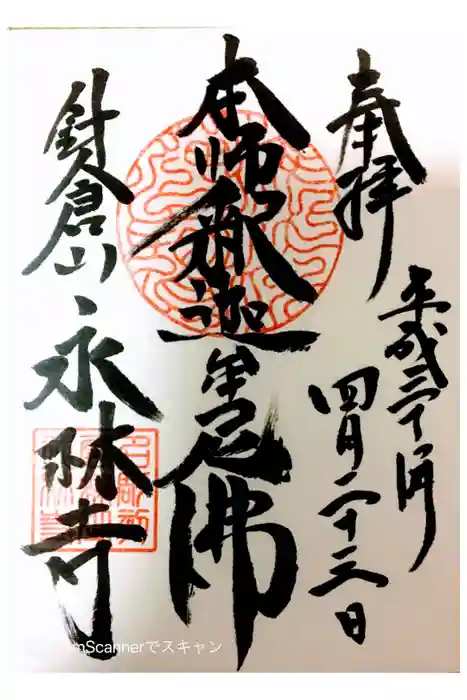 奉拝
平成三十年
四月二十三日
本師釈迦牟尼佛
針倉山
永林寺
mScannerでスキャン